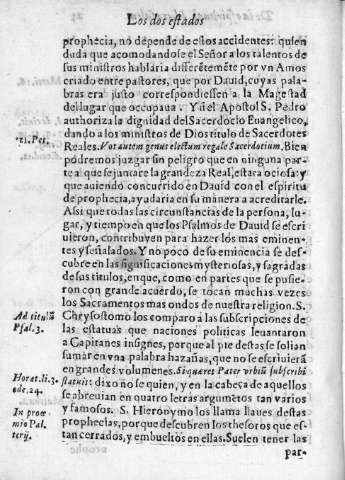 Los dos estados
prophecia, no depende de estos accidentes: quien
duda que acomodandose el Señor a los talentos de
sus ministros hablaria differẽtemẽte por vn Amos
criado entre pastores, que por Dauid, cuyas pala-
bras era justo correspondiessen a la Magestad
del lugar que occupaua. Y si el Apostol S. Pedro
1. Pet.
authoriza la dignidad del Sacerdocio Euangelico,
dando a los ministros de Dios titulo de Sacerdotes
Reales. Vos autem genus electum regale Sacerdotium. Bien
podremos juzgar sin peligro que en ninguna par-
te a que se juntare la grandeza Real, estara ociosa: y
que auiendo concurrido en Dauid con el espiritu
de prophecia, ayudaria en su manera a acreditarle.
Assi que todas las circunstancias de la persona, lu-
gar, y tiempo en que los Psalmos de Dauid se escri
uieron, contribuyen para hazer los mas eminen-
tes y señalados. Y no poco de su eminencia se des-
cubre en las significaciones mysteriosas, y sagradas
de sus titulos, en que, como en partes que se pusie-
ron con grande acuerdo, se tocan muchas vezes
los Sacramentos mas ondos de nuestra religion. S.
Ad titulũ
Psal. 3.
Chrysostomo los comparo a las subscripciones de
las estatuas que naciones politicas leuantaron
a Capitanes insignes, porque al pie destas se solian
sumar en vna palabra hazañas, que no se escriuierã
en grandes volumenes. Sequares Pater vrbiũ subscribi
Horat. li. 3.
ode. 24.
statuis: dixo no se quien, y en la cabeça de aquellos
se abreuian en quatro letras argumẽtos tan varios
In proœ
mio Psal-
terij.
y famosos. S. Hieronymo los llama llaues destas
prophecias, porque descubren los thesoros que es-
tan cerrados, y embueltos en ellas. Suelen tener las
par-